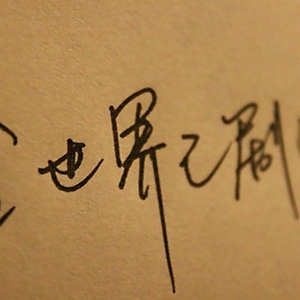 世界之剧